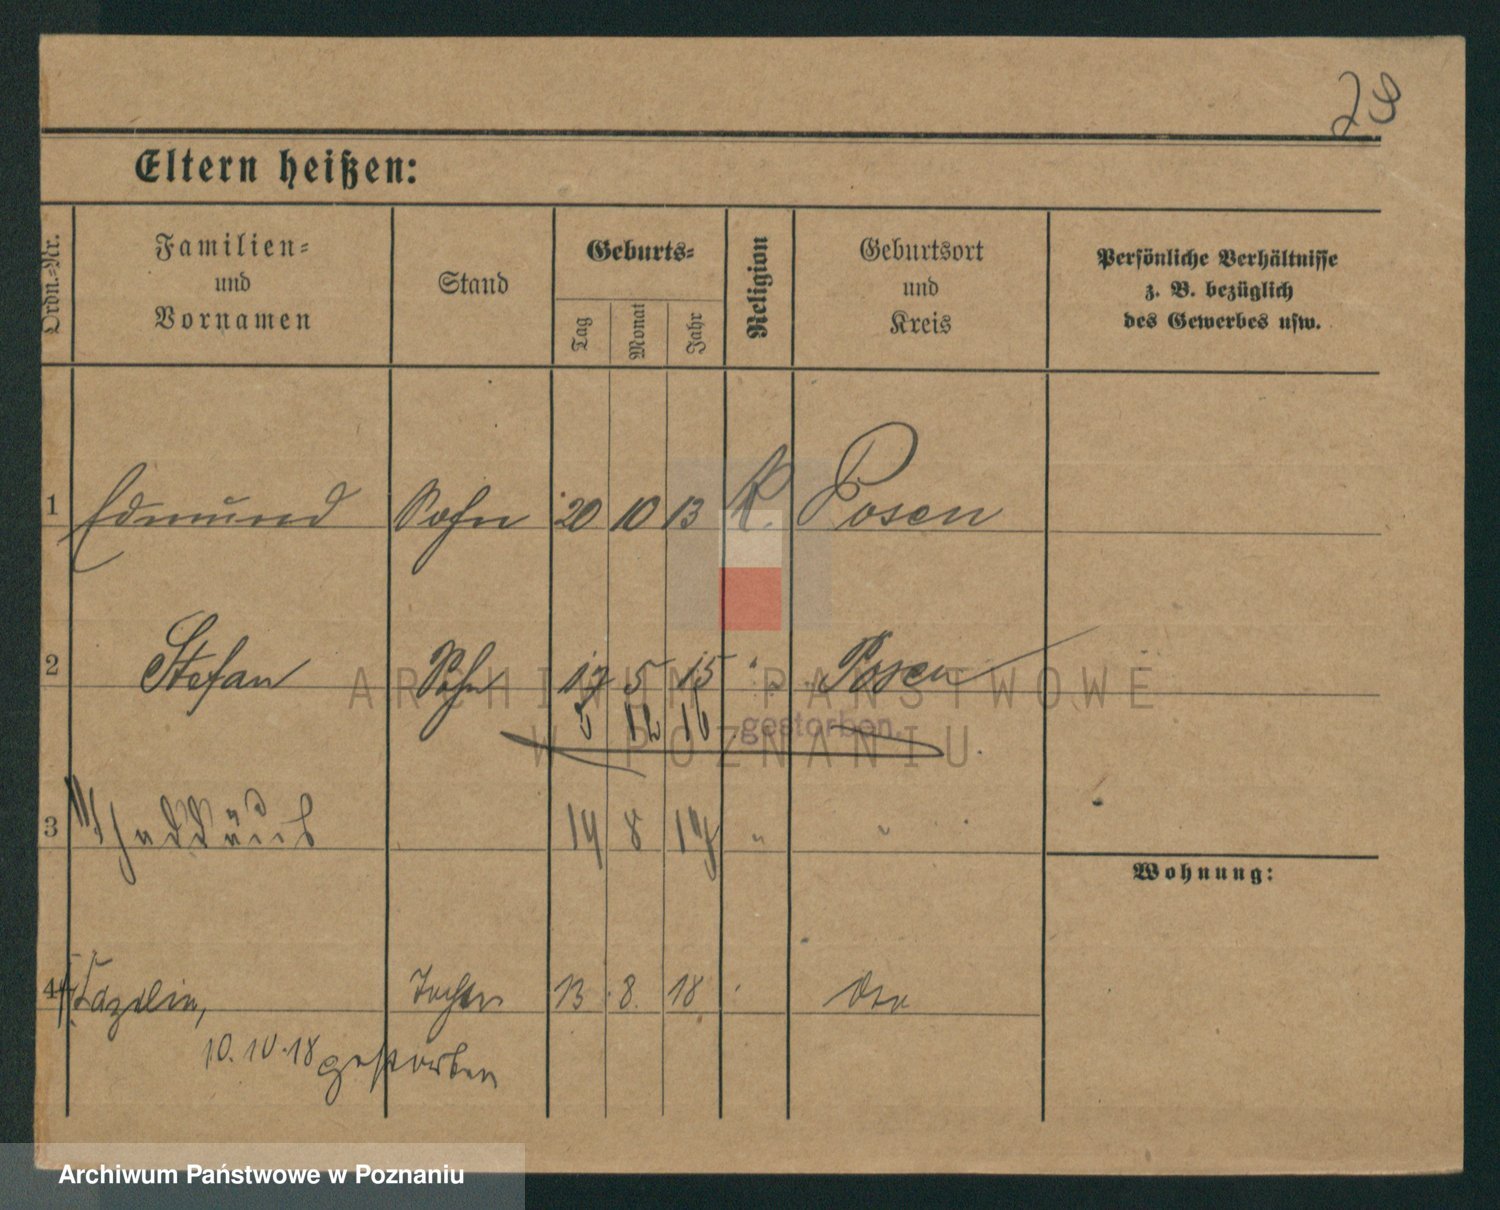 23
Eltern heißen:
Ordn.-Nr.
Familien- und Vornamen
Stand
Geburts-
Tag
Monat
Jahr
Religion
Geburtsort und Kreis
Persönliche Verhältnisse
z. B. bezüglich
des Gewerbes usw.
1 Edmund Sohn 20 10 13 K. Posen
2 Stefan Sohn 17 5 15 " Posen
5 12 16 gestorben.
3 Thaddäus 14 8 17 " "
Wohnung:
4 Tochter 13 8. 18
10.10.18 gestorben
ARCHIWUM PAŃSTWOWE
W POZNANIU
Archiwum Państwowe w Poznaniu